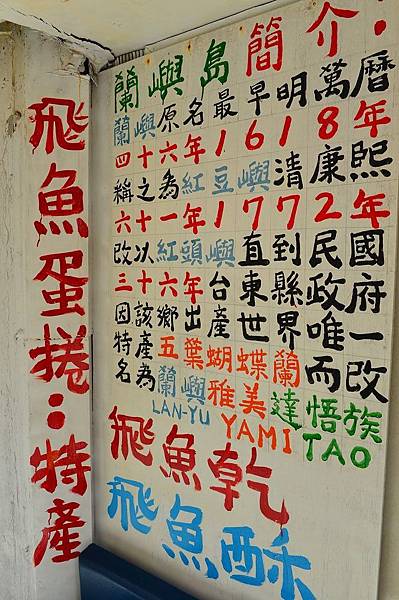 飛魚蛋捲：特產
蘭嶼島簡介：
蘭嶼原名最早明萬曆
四十六年1618年
稱之為紅豆嶼清康熙
六十一年1772年
改以紅頭嶼直到民國
三十六年台東縣政府
因該鄉出產世界唯一
特產為五葉蝴蝶蘭而改
名蘭嶼雅美達悟族
LAN-YU YAMI TAO
飛魚乾
飛魚酥